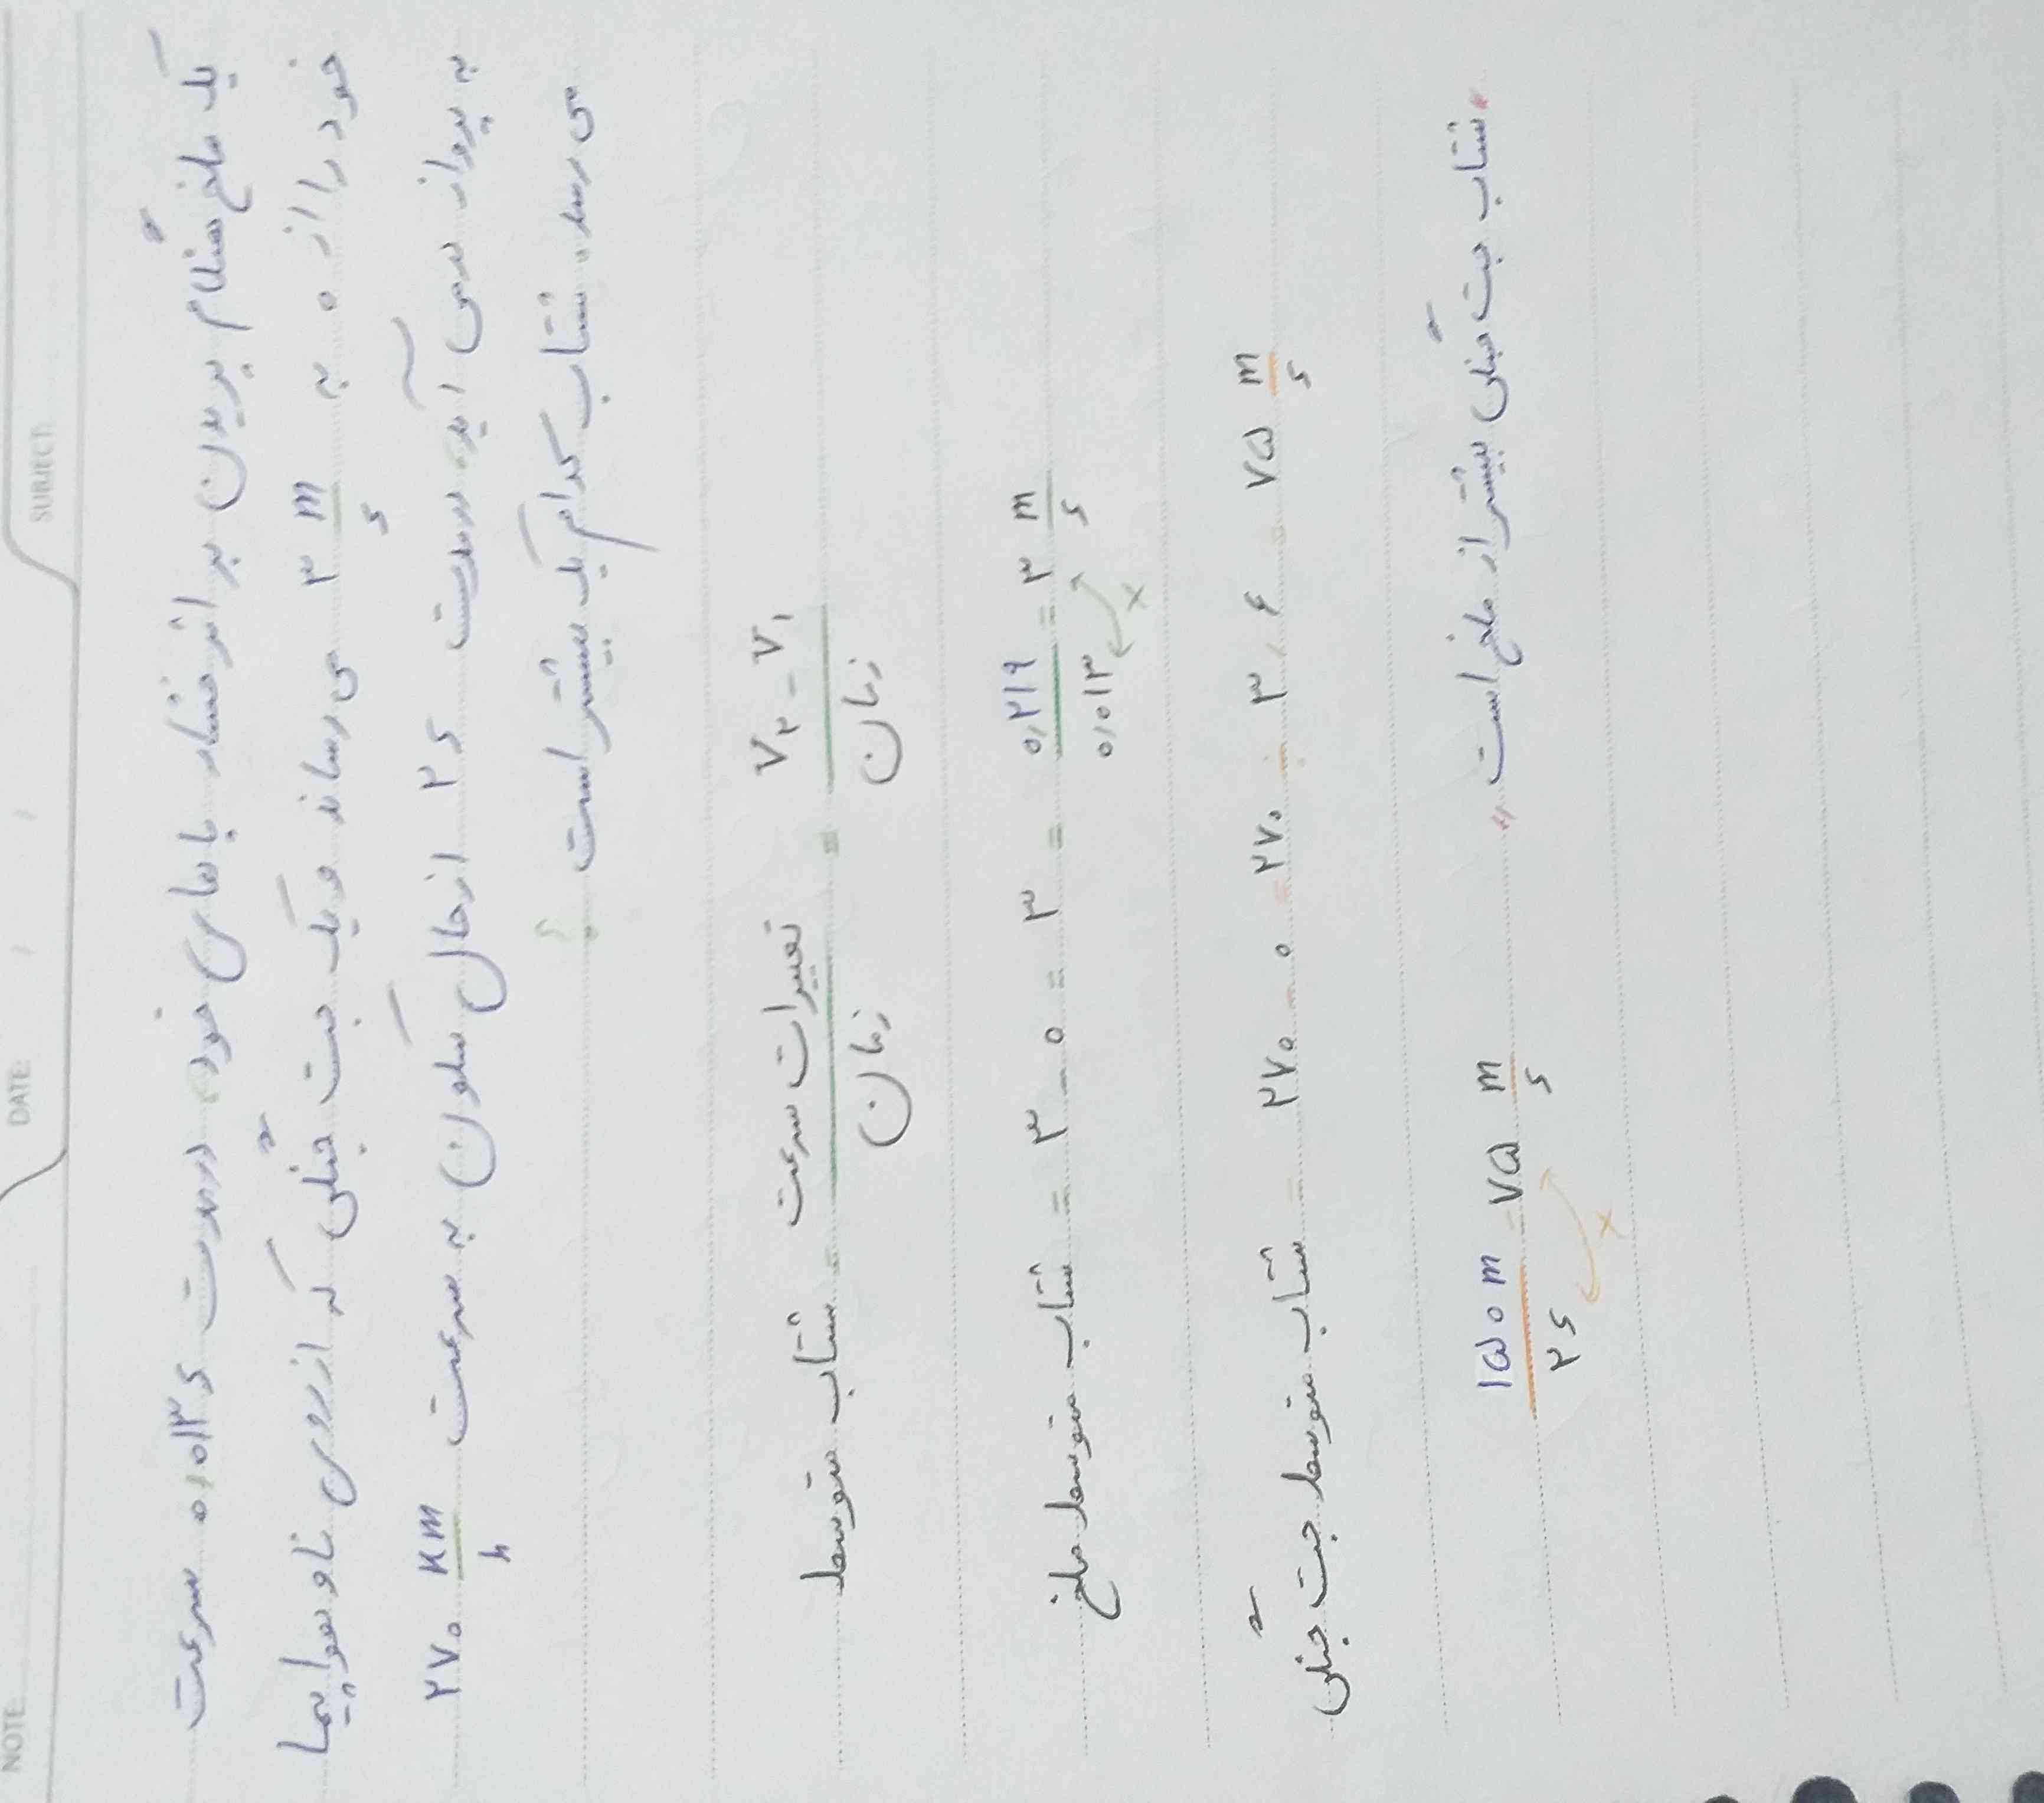 NOTE DATE / / SUBJECT:
یک ملخ هنگام پریدن بر اثر فشار پاهای خود، در مدت ۰/۰۱۳ s سرعت
خود را از ۰ به ۳ m/s می‌رساند و یک جت جنگی که از روی ناو هواپیما
به پرواز در می آید، در مدت ۲ s از حال سکون به سرعت ۲۷۰ km/h
می رسد. شتاب کدام یک بیشتر است ؟
شتاب متوسط = تغییرات سرعت / زمان = V۲ - V۱ / زمان
شتاب متوسط ملخ = ۳ - ۰ = ۳ = ۰/۲۱۹ / ۰/۰۱۳ = ۳ m/s ×
شتاب متوسط جت جنگی = ۲۷۰ - ۰ = ۲۷۰ ÷ ۳/۶ = ۷۵ m/s
۱۵۰ m / ۲ s = ۷۵ m/s × "شتاب جت جنگی بیشتر از ملخ است"